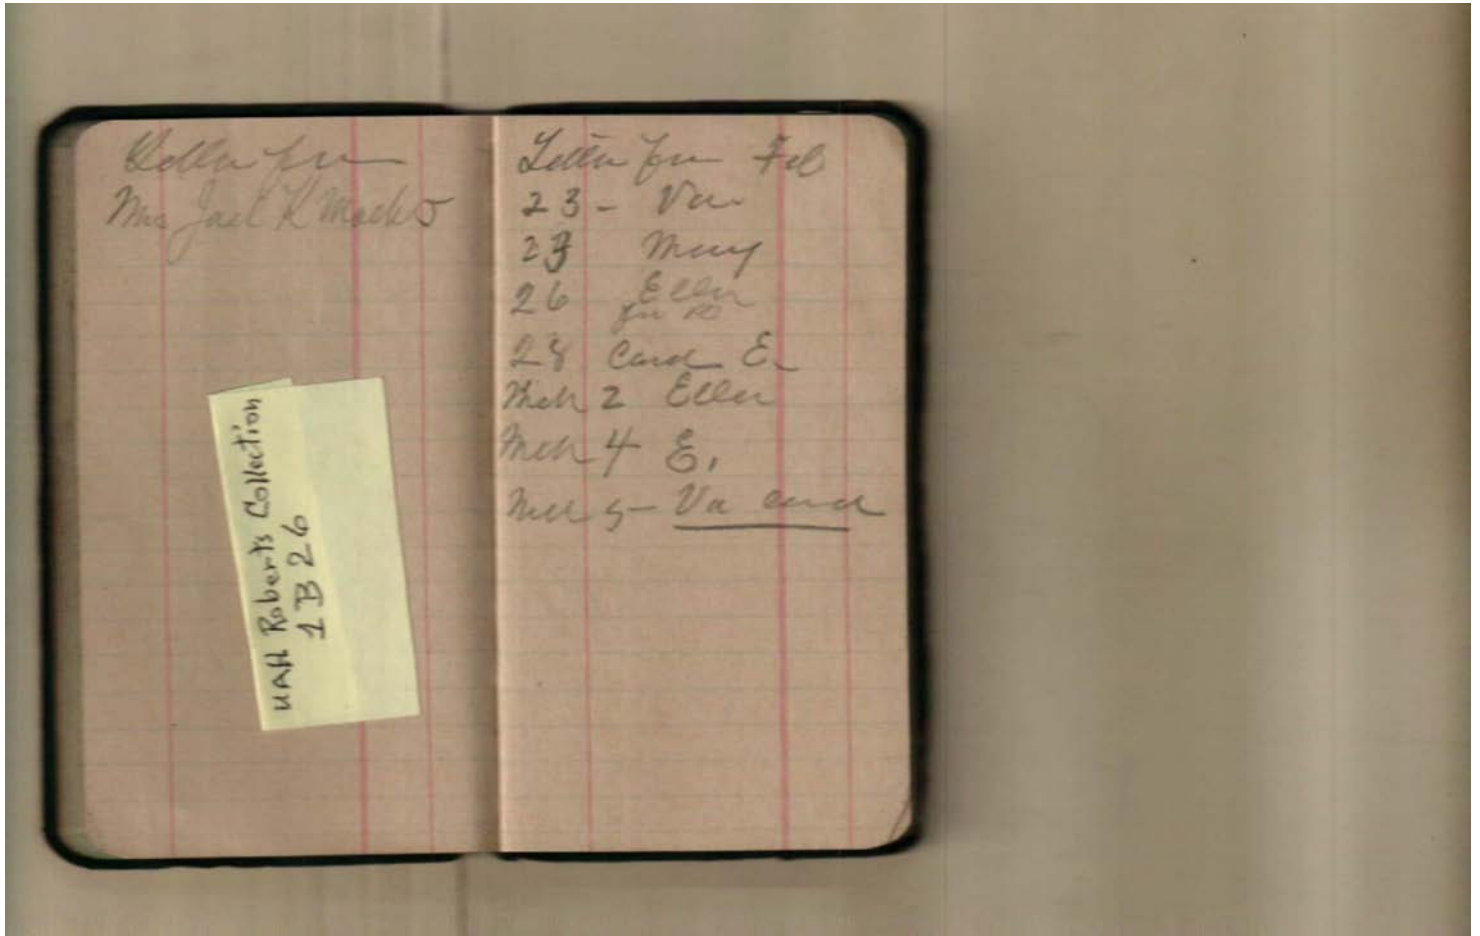 Letter from
Mrs Jack K
UAH Roberts Collection
1B26
Letter from Feb
23 - Van
23 Mary
26 Ellen
28 Card E.
Mch 2 Ellen
Mch 4 E.
Mch 5 - Va card